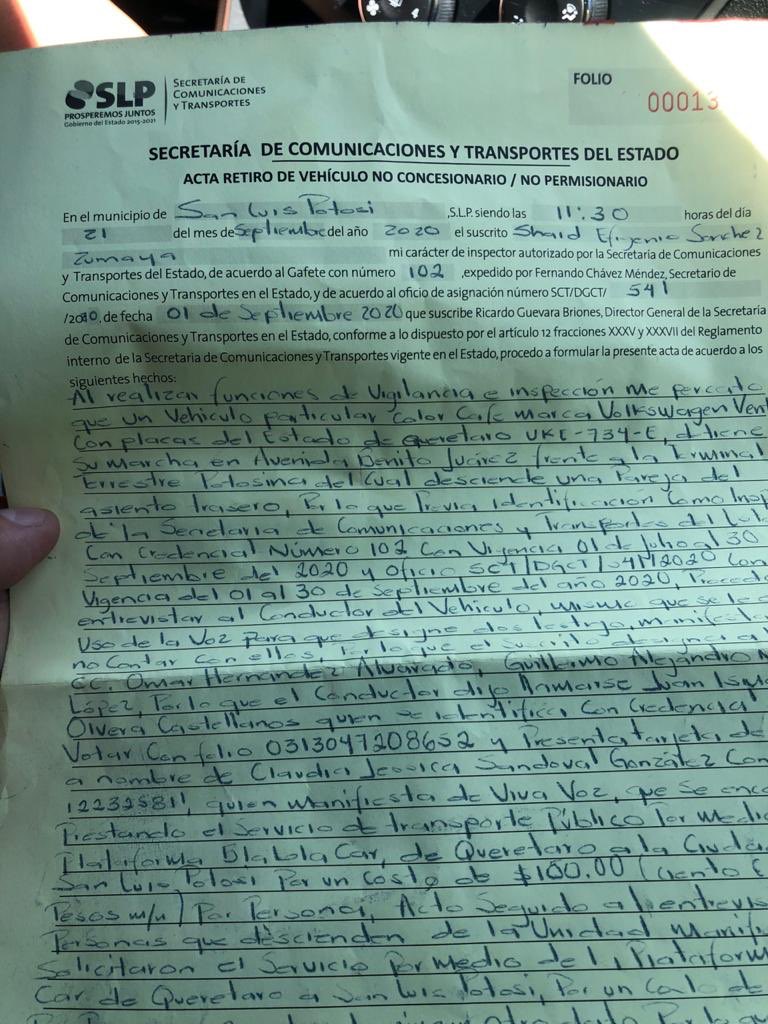 SLP
PROSPEREMOS JUNTOS
Gobierno del Estado 2015-2021
SECRETARÍA DE
COMUNICACIONES
Y TRANSPORTES
FOLIO
00013
SECRETARÍA DE COMUNICACIONES Y TRANSPORTES DEL ESTADO
ACTA RETIRO DE VEHÍCULO NO CONCESIONARIO / NO PERMISIONARIO
En el municipio de San Luis Potosi ,S.L.P. siendo las 11:30 horas del día
21 del mes de Septiembre del año 2020 el suscrito Shaid Efigenio Sanchez
Zumaya mi carácter de inspector autorizado por la Secretaria de Comunicaciones
y Transportes del Estado, de acuerdo al Gafete con número 102 ,expedido por Fernando Chávez Méndez, Secretario de
Comunicaciones y Transportes en el Estado, y de acuerdo al oficio de asignación número SCT/DGCT/ 541
/2020, de fecha 01 de Septiembre 2020 que suscribe Ricardo Guevara Briones, Director General de la Secretaría
de Comunicaciones y Transportes en el Estado, conforme a lo dispuesto por el artículo 12 fracciones XXXV y XXXVII del Reglamento
interno de la Secretaria de Comunicaciones y Transportes vigente en el Estado, procedo a formular la presente acta de acuerdo a los
siguientes hechos:
Al realizar funciones de Vigilancia e inspección me percato
que un Vehiculo particular Color Cafe marca Volkswagen Vent
Con placas del Estado de Queretaro UKE-734-E, detiene
Su marcha en Avenida Benito Juárez frente a la terminal
terrestre Potosina del Cual desciende una Pareja del
asiento trasero, Por lo que Previa identificación Como Insp
de la Secretaria de Comunicaciones y Transportes del
Con Credencial Número 102 Con Vigencia 01 de Julio al 30
Septiembre del 2020 y Oficio SCT/DGCT/541/2020 Con
Vigencia del 01 al 30 de Septiembre del año 2020, Proced
entrevistar al Conductor del Vehiculo, mismo que se le
Uso de la Voz Para que designe dos testigo, manifiesta
no Contar Con ellos, Por lo que el Suscrito designa a
CC. Omar Hernandez Alvarado, Guillermo Alejandro M
López, Por lo que el Conductor dijo llamarse Juan Ism
Olvera Castellanos quien se identifica Con Credencial
Votar Con folio 0313047208652 y Presenta tarjeta de
a nombre de Claudia Jessica Sandoval González Con
122325811, quien manifiesta de Viva Voz, que Se enc
Prestando el Servicio de transporte Público Por Medi
Plataforma BlablaCar, de Queretaro a la Ciuda
San Luis Potosi Por un Costo de $100.00 (Ciento
Pesos m/n) Por Persona, Acto Seguido al entrevis
Personas que descienden de la Unidad Manif
Solicitaron el Servicio Por medio de la Plataform
Car de Queretaro a San Luis Potosi, Por un Costo de